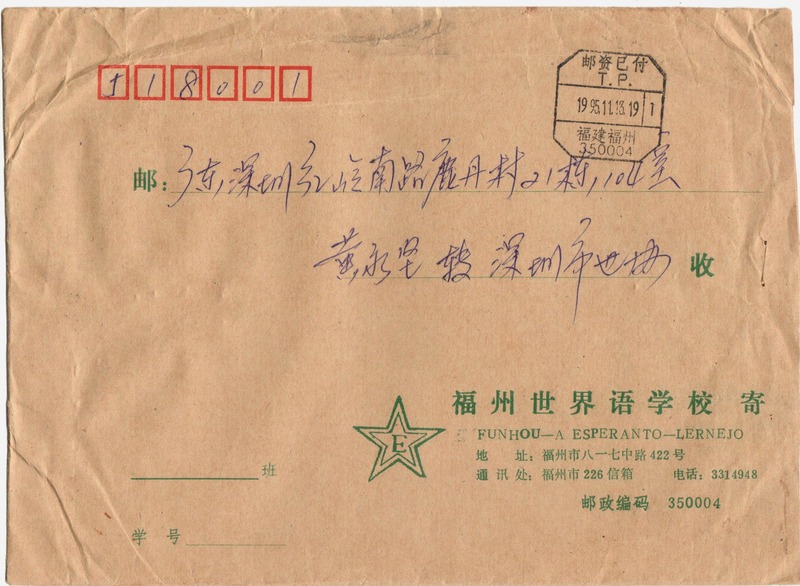 518001
邮资已付
T.P.
1995.11.13.19 1
福建福州
350004
邮：广东深圳红岭南路鹿丹村21栋,104室
黄永坚 转 深圳市世协 收
福州世界语学校 寄
E
FUNHOU—A ESPERANTO—LERNEJO
地 址：福州市八一七中路422号
通讯处：福州市226信箱 电话：3314948
邮政编码 350004
班
学号